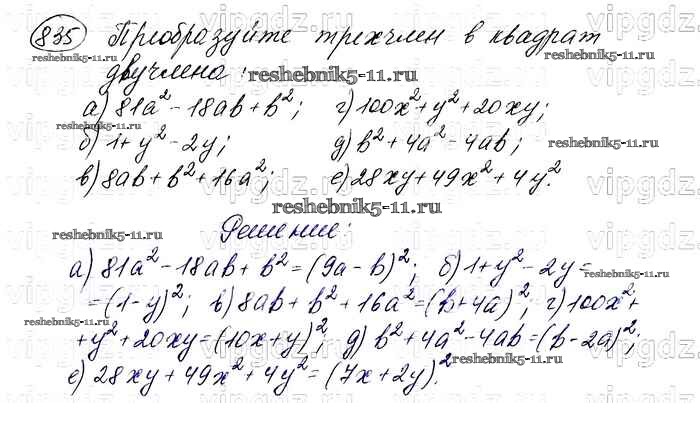 835 Преобразуйте трехчлен в квадрат
двучлена:
а) 81a² - 18ab + b²; г) 100x² + y² + 20xy;
б) 1 + y² - 2y; д) b² + 4a² - 4ab;
в) 8ab + b² + 16a²; е) 28xy + 49x² + 4y².
Решение:
а) 81a² - 18ab + b² = (9a - b)²; б) 1 + y² - 2y =
= (1 - y)²; в) 8ab + b² + 16a² = (b + 4a)²; г) 100x² +
+ y² + 20xy = (10x + y)²; д) b² + 4a² - 4ab = (b - 2a)²;
е) 28xy + 49x² + 4y² = (7x + 2y)².
reshebnik5-11.ru
reshebnik5-11.ru
reshebnik5-11.ru
reshebnik5-11.ru
reshebnik5-11.ru
reshebnik5-11.ru
reshebnik5-11.ru
reshebnik5-11.ru
reshebnik5-11.ru
vipgdz